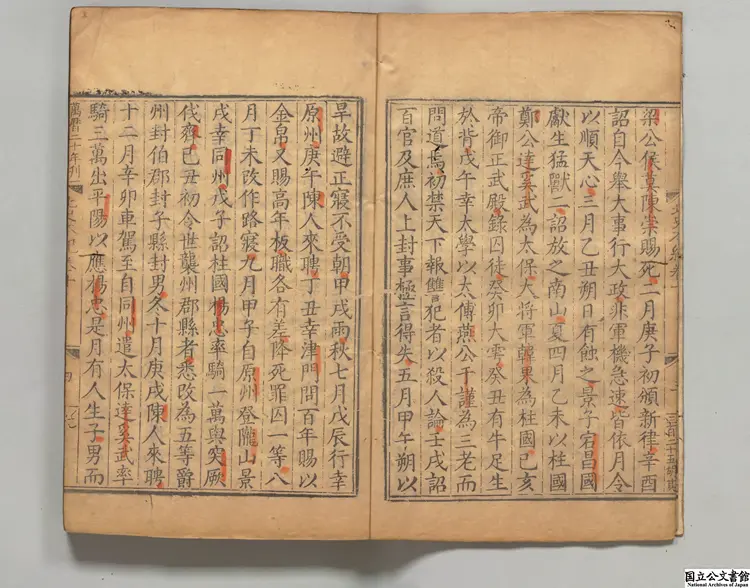 梁公侯莫陳崇賜死二月庚子初頒新律辛酉
詔自今舉大事行大政非軍機急速皆依月令
以順天心三月乙丑朔日有蝕之景子宕昌國
獻生猛獸二詔放之南山夏四月乙未以柱國
鄭公達奚武為太保大將軍韓果為柱國己亥
帝御正武殿錄囚徒癸卯大雩癸丑有牛足生
於背戊午幸太學以太傅燕公于謹為三老而
問道焉初禁天下報讎犯者以殺人論壬戌詔
百官及庶人上封事極言得失五月甲午朔以
旱故避正寢不受朝甲戌雨秋七月戊辰行幸
原州庚午陳人來聘丁丑幸津門問百年賜以
金帛又賜高年板職各有差降死罪囚一等八
月丁未改作路寢九月甲子自原州登隴山景
戌幸同州戊子詔柱國楊忠率騎一萬與突厥
伐齊己丑初令世襲州郡縣者悉改為五等爵
州封伯郡封子縣封男冬十月庚戌陳人來聘
十二月辛卯車駕至自同州遣太保達奚武率
騎三萬出平陽以應楊忠是月有人生子男而
萬曆二十年刊
國立公文書館
National Archives of Japan